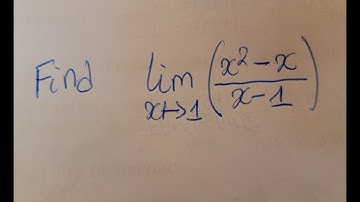 Find lim x→1 (x² - x / x - 1)